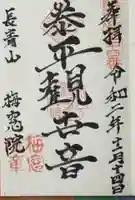 奉拝 令和二年十二月十四日
泰平観世音
長青山 梅窓院